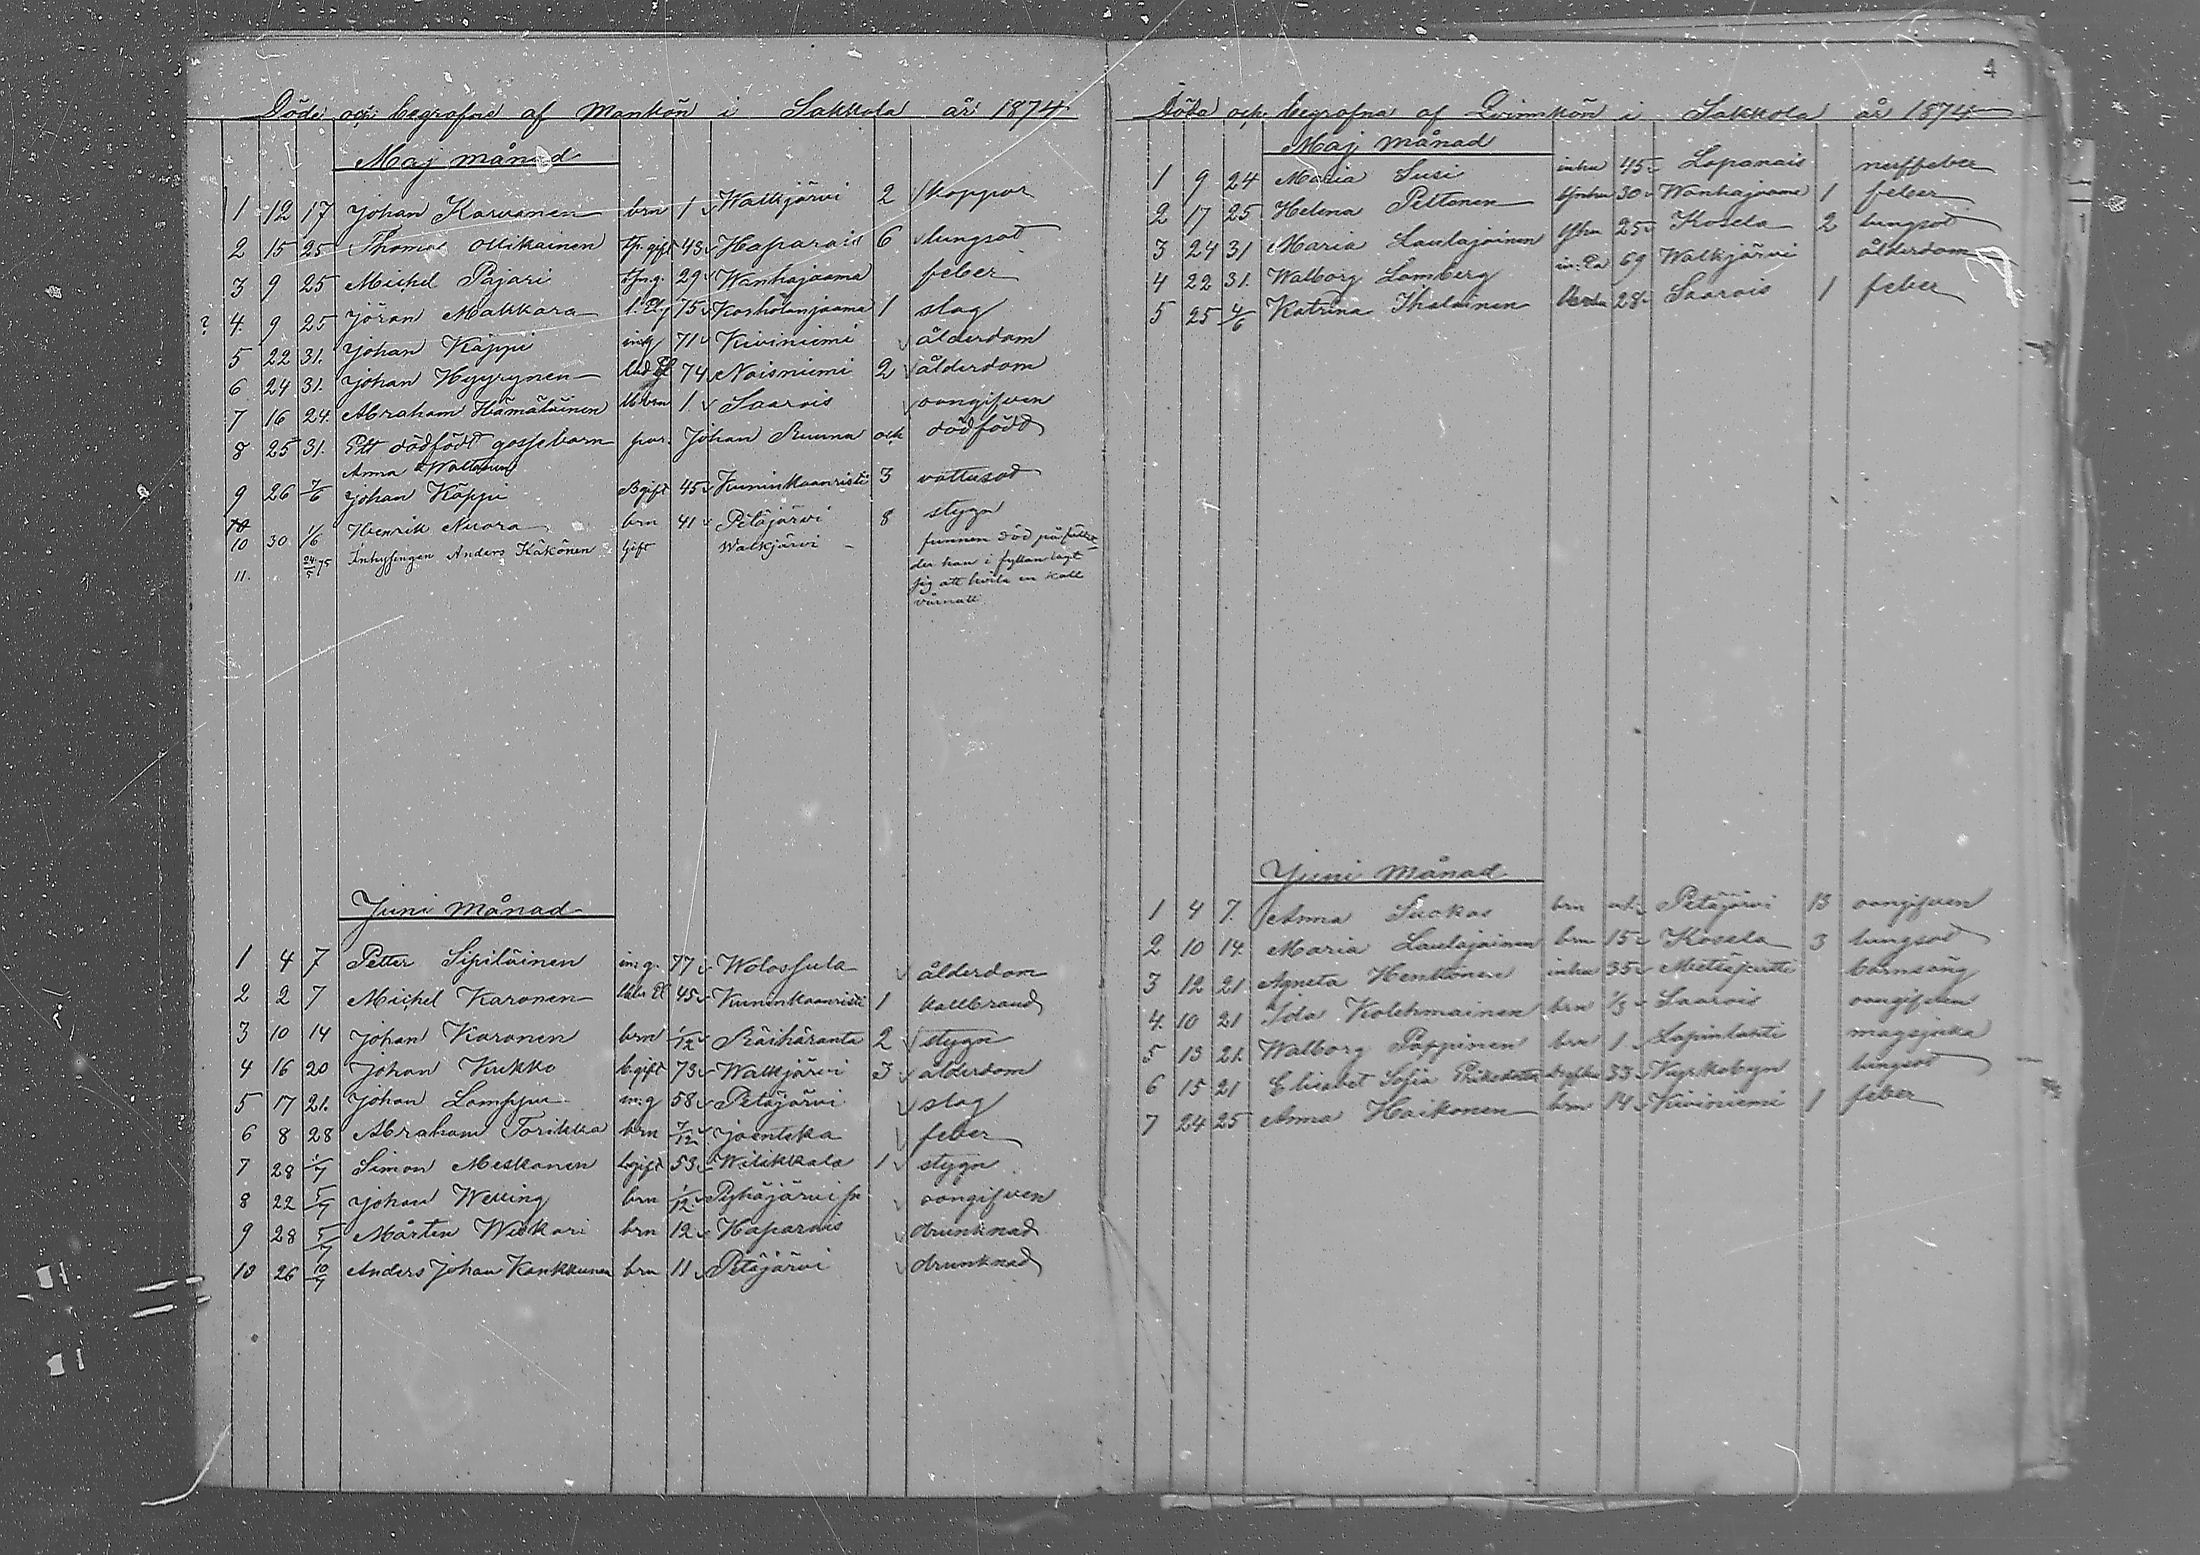 Döde och begrafne af Mankön i Sakkola år 1874
Maj månad
1 12 17 Johan Karvanen brn 1 Walkjärvi 2 koppor
2 15 25 Thomas Ollikainen tj. gift 43 Haparais 6 lungsot
3 9 25 Michel Pajari tjn g. 29 Wanhajaama feber
? 4. 9 25 Jöran Makkara 75 Koshölanjaama 1 slag
5 22 31. Johan Käppi in g 71 Kiviniemi ålderdom
6 24 31. Johan Hyyrynen 74 Noisniemi 2 ålderdom
7 16 24. Abraham Hämäläinen brn 1. Saarois oangifven
8 25 31. Ett dödfödt gossebarn par. Johan Ruuna och dödfödd
Anna
9 26 7/6 Johan Käppi B gift 45 Kuninkaanristi 3 vattusot
10 30 1/6 Henrik Nuora brn 41 Petäjärvi 8 stygn
11. 24/5 75 Inhysingen Anders Käkönen Gift Walkjärvi - funnen död på
der han i fyllan lagt
sig att hvila en kall
vårnatt
Juni månad
1 4 7 Petter Sipiläinen in: g. 77 Wolossula ålderdom
2 2 7 Michel Karonen 45 Kuninkaanristi 1 kallbrand
3 10 14 Johan Karonen brn 1/12 Räihäranta 2 stygn
4 16 20 Johan Kukko b gift 73 Walkjärvi 3 ålderdom
5 17 21. Johan Lamppu in: g 58 Petäjärvi slag
6 8 28 Abraham Torikka brn 7/12 Joentaka feber
7 28 1/7 Simon Meskanen b gift 53 Wilikkala 1 stygn
8 22 5/7 Johan Welling brn 1/12 Pyhäjärvi sn oangifven
9 28 5/7 Mårten Wiskari brn 12 Haparais drunknad
10 26 10/7 Anders Johan Kankkunen brn 11 Petäjärvi drunknad
4
Döda och begrafna af Qvinnkön i Sakkola år 1874
Maj månad
1 9 24 Maria Susi inhu 45 Lapanais nerffeber
2 17 25 Helena Peltonen tjnhu 30 Wanhajaama 1 feber
3 24 31 Maria Laulajainen 25 Kosela 2 lungsot
4 22 31. Walborg Lamberg 69 Walkjärvi ålderdom
5 25 4/6 Katrina Ihalainen 28 Saarois 1 feber
Juni månad
1 4 7. Anna Suokas brn Petäjärvi 13 oangifven
2 10 14. Maria Laulajainen brn 15 Kosela 3 lungsot
3 12 21. Agneta Henttonen inhu 35 Metsäpirtti barnsäng
4. 10 21 Ida Kolehmainen brn 1/3 Saarois oangifven
5 13 21. Walborg Pappinen brn 1. Lapinlahti magsjuka
6 15 21 Elisabet Sofia 33 Kyrkobyn lungsot
7 24 25 Anna Haikonen brn 14 Kiviniemi 1 feber